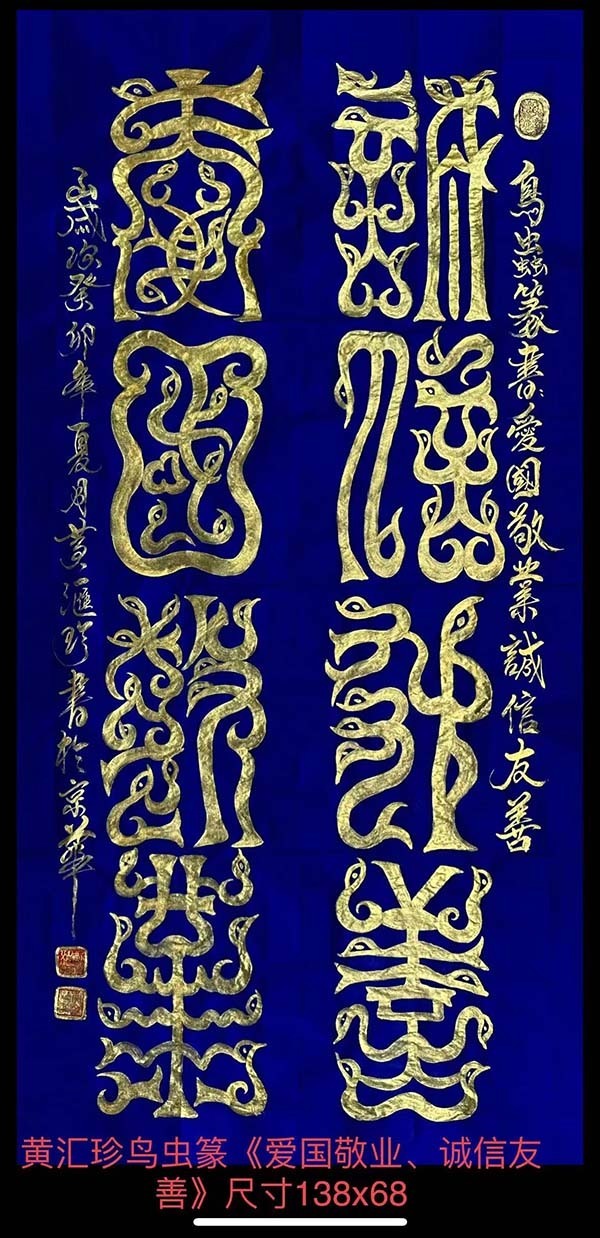 鳥蟲篆書：愛國敬業誠信友善
誠信友善
愛國敬業
歲次癸卯年夏月黄滙珍書於京華
黄汇珍鸟虫篆《爱国敬业、诚信友
善》尺寸138x68